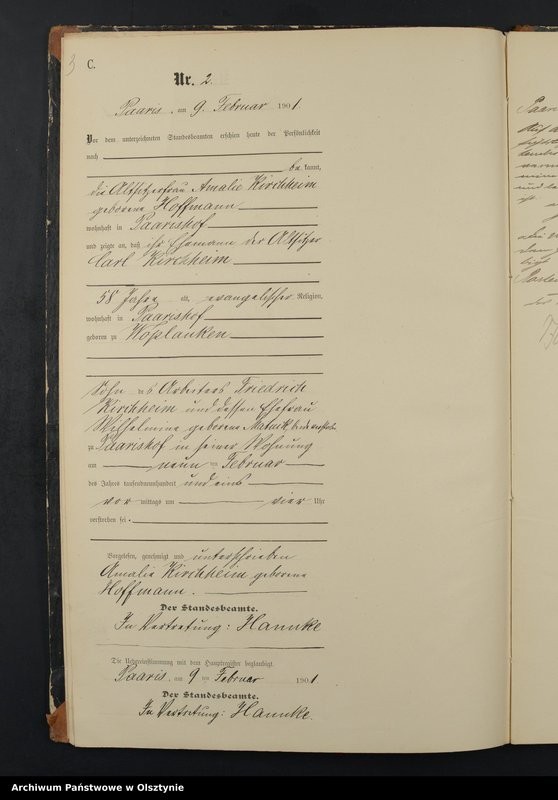 3
C.
Nr. 2.
Paaris, am 9. Februar 1901
Vor dem unterzeichneten Standesbeamten erschien heute der Persönlichkeit
nach
be kannt,
die Altsitzerfrau Amalie Kirchheim
geborene Hoffmann
wohnhaft in Paarishof
und zeigte an, daß ihr Ehemann der Altsitzer
Carl Kirchheim
58 Jahre alt, evangelischer Religion,
wohnhaft in Paarishof
geboren zu Woplauken
Sohn des Arbeiters Friedrich
Kirchheim und dessen Ehefrau
Wilhelmine geborene
zu Paarishof in seiner Wohnung
am neun ten Februar
des Jahres tausendneunhundert und eins
vor mittags um vier Uhr
verstorben sei.
Vorgelesen, genehmigt und unterschrieben
Amalie Kirchheim geborene
Hoffmann.
Der Standesbeamte.
In Vertretung: Hannke
Die Uebereinstimmung mit dem Hauptregister beglaubigt.
Paaris, am 9 ten Februar 1901
Der Standesbeamte.
In Vertretung: Hannke.
Paar
Archiwum Państwowe w Olsztynie